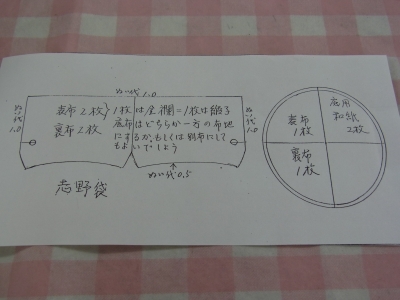 ぬい代1.0
ぬい代1.0
表布2枚
裏布2枚
1枚は金襴=1枚は緞子
底布はどちらか一方の布地
にするか、もしくは別布にして
もよいでしょう
ぬい代1.0
ぬい代0.5
志野袋
表布
1枚
裏布
1枚
底用
和紙
2枚